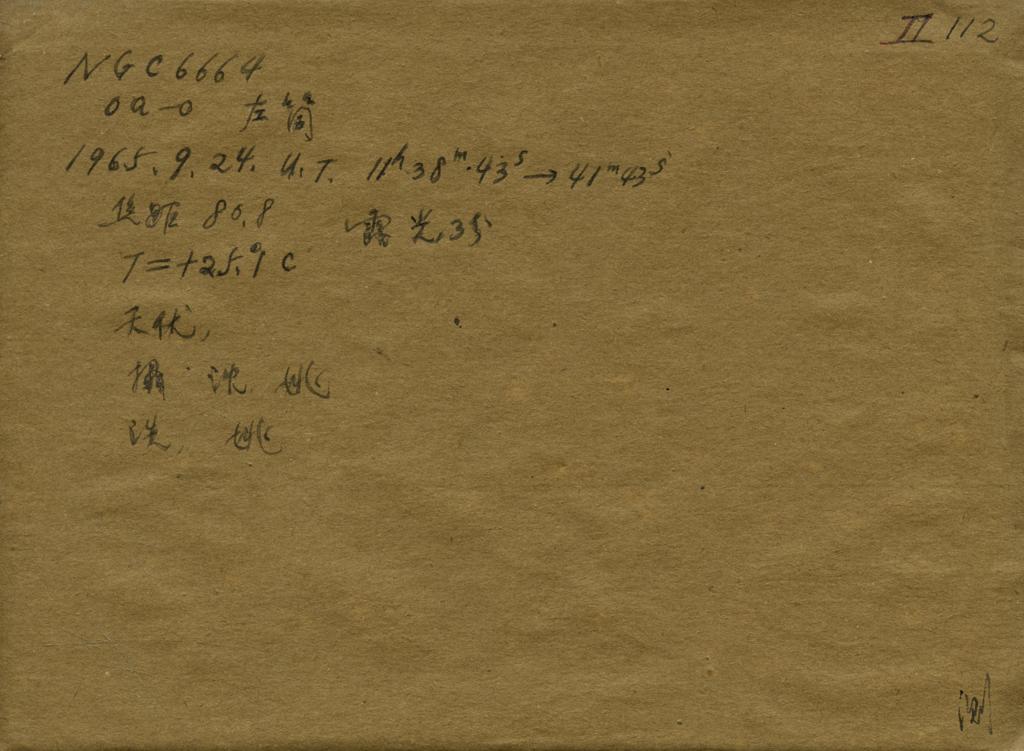 II 112
NGC 6664
Oa-O 左筒
1965. 9. 24. U.T. 11ʰ 38ᵐ 43ˢ → 41ᵐ 43ˢ
焦距 80.8 露光 3分
T=+25.°9 C
天优,
摄 沈 姚
洗, 姚
测